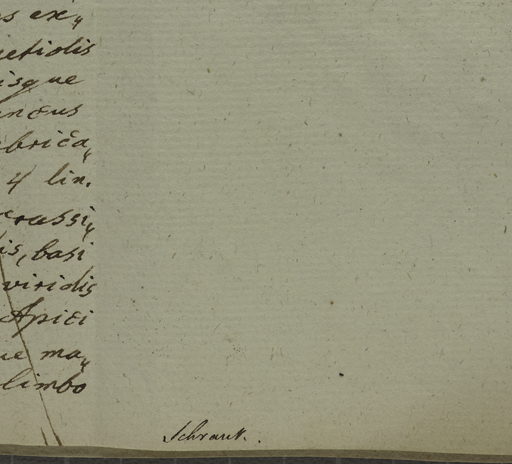 s ex„
isque
brica„
4 lin.
crassi„
is, basi
viridis
Apici
ue ma„
limbo
Schrank.